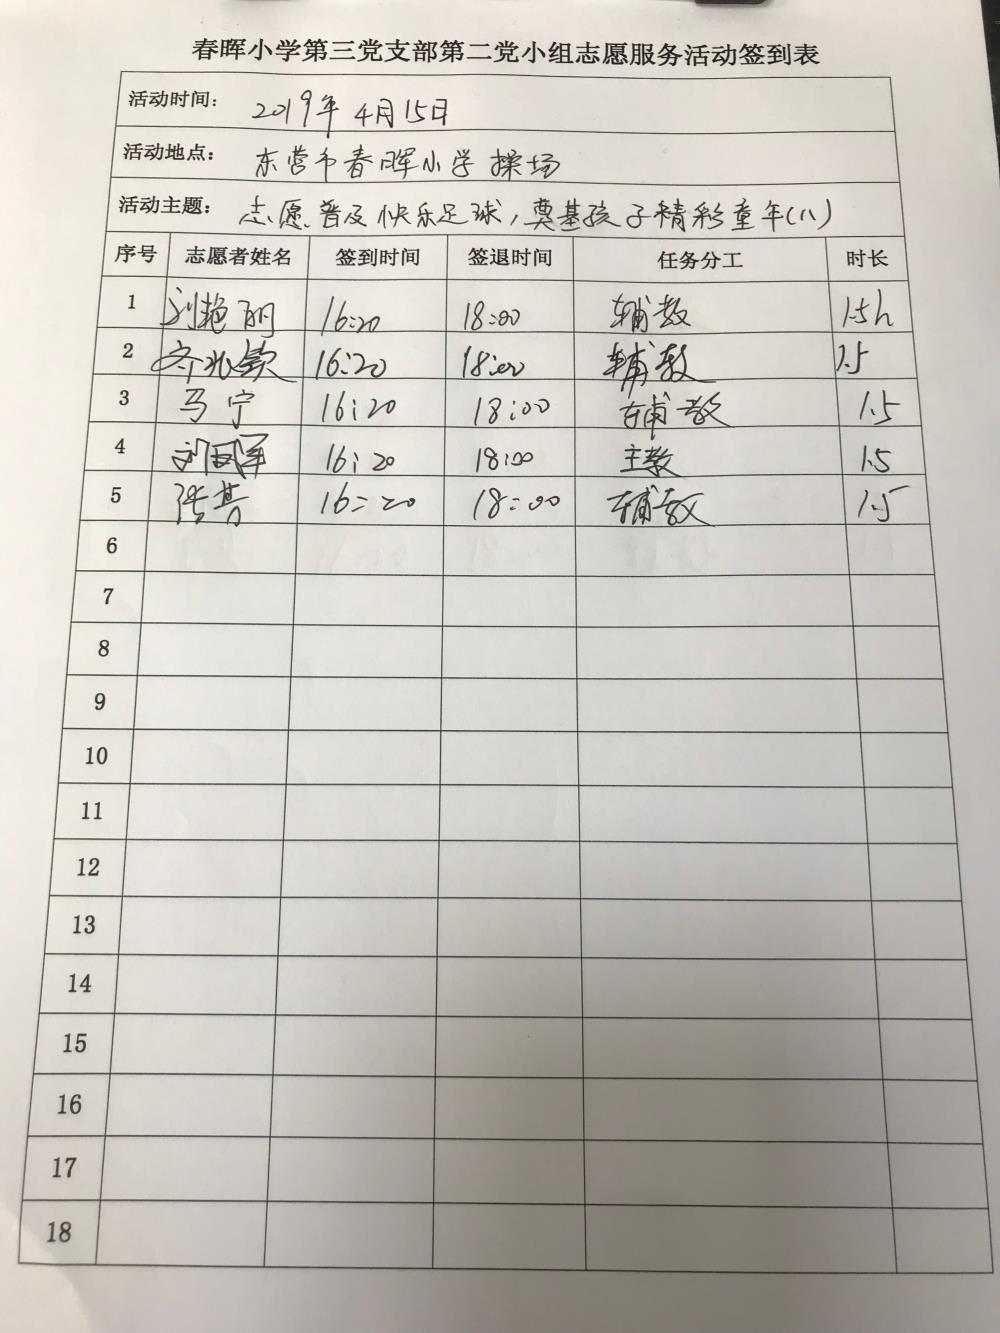 春晖小学第三党支部第二党小组志愿服务活动签到表
活动时间： 2019年4月15日
活动地点： 东营市春晖小学操场
活动主题： 志愿普及快乐足球，奠基孩子精彩童年(八)
序号 志愿者姓名 签到时间 签退时间 任务分工 时长
1 刘艳丽 16:20 18:00 辅教 1.5h
2 16:20 18:00 辅教 1.5
3 马宁 16:20 18:00 辅教 1.5
4 16:20 18:00 主教 1.5
5 16:20 18:00 辅教 1.5
6
7
8
9
10
11
12
13
14
15
16
17
18